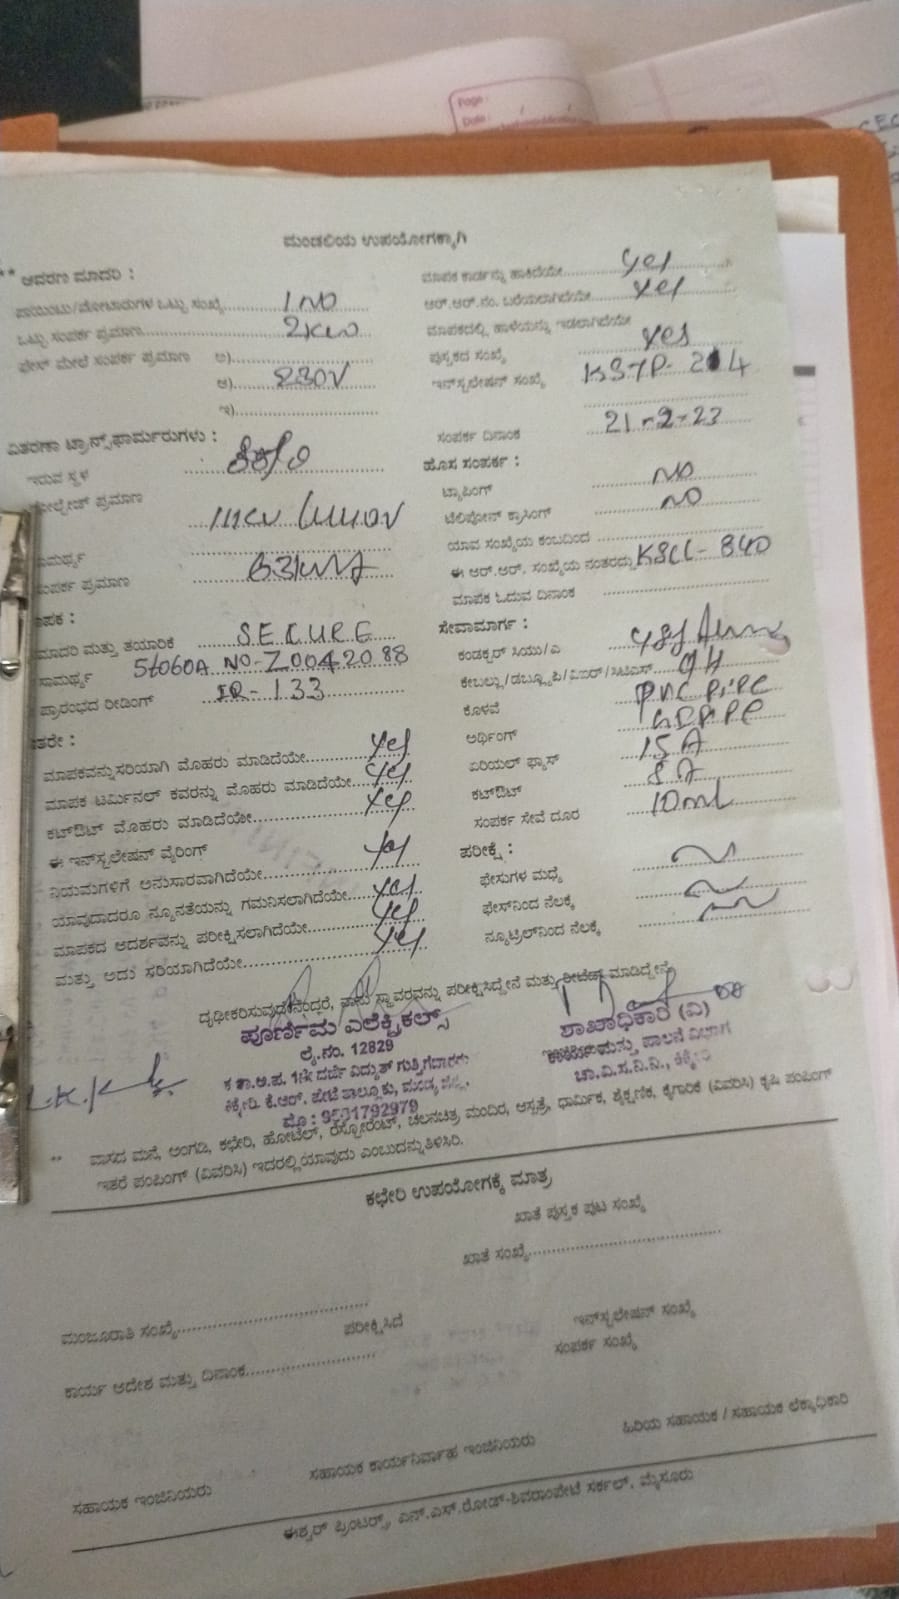 Page :
Date :
ಮಂಡಲಿಯ ಉಪಯೋಗಕ್ಕಾಗಿ
** ಆವರಣ ಮಾದರಿ :
ಪಾಯಿಂಟು/ಮೋಟಾರುಗಳ ಒಟ್ಟು ಸಂಖ್ಯೆ 1 NO
ಒಟ್ಟು ಸಂಪರ್ಕ ಪ್ರಮಾಣ 2KW
ಫೇಸ್ ಮೇಲೆ ಸಂಪರ್ಕ ಪ್ರಮಾಣ ಅ)
ಆ) 230V
ಇ)
ವಿತರಣಾ ಟ್ರಾನ್ಸ್‌ಫಾರ್ಮರುಗಳು :
ಇರುವ ಸ್ಥಳ
ವೋಲ್ಟೇಜ್ ಪ್ರಮಾಣ
ಸಾಮರ್ಥ್ಯ
ಸಂಪರ್ಕ ಪ್ರಮಾಣ
ಮಾಪಕ :
ಮಾದರಿ ಮತ್ತು ತಯಾರಿಕೆ SECURE
ಸಾಮರ್ಥ್ಯ 5to60A NO-Z0042088
ಪ್ರಾರಂಭದ ರೀಡಿಂಗ್ IR-133
ಇತರೇ :
ಮಾಪಕವನ್ನು ಸರಿಯಾಗಿ ಮೊಹರು ಮಾಡಿದೆಯೇ yes
ಮಾಪಕ ಟರ್ಮಿನಲ್ ಕವರನ್ನು ಮೊಹರು ಮಾಡಿದೆಯೇ yes
ಕಟ್‌ಔಟ್ ಮೊಹರು ಮಾಡಿದೆಯೇ yes
ಈ ಇನ್‌ಸ್ಟಲೇಷನ್ ವೈರಿಂಗ್
ನಿಯಮಗಳಿಗೆ ಅನುಸಾರವಾಗಿದೆಯೇ yes
ಯಾವುದಾದರೂ ನ್ಯೂನತೆಯನ್ನು ಗಮನಿಸಲಾಗಿದೆಯೇ yes
ಮಾಪಕದ ಆದರ್ಶವನ್ನು ಪರೀಕ್ಷಿಸಲಾಗಿದೆಯೇ yes
ಮತ್ತು ಅದು ಸರಿಯಾಗಿದೆಯೇ yes
ಮಾಪಕ ಕಾರ್ಡನ್ನು ಹಾಕಿದೆಯೇ yes
ಆರ್.ಆರ್.ನಂ. ಬರೆಯಲಾಗಿದೆಯೇ yes
ಮಾಪಕದಲ್ಲಿ ಹಾಳೆಯನ್ನು ಇಡಲಾಗಿದೆಯೇ
ಪುಸ್ತಕದ ಸಂಖ್ಯೆ yes
ಇನ್‌ಸ್ಟಲೇಷನ್ ಸಂಖ್ಯೆ KSTP-214
ಸಂಪರ್ಕ ದಿನಾಂಕ 21-2-23
ಹೊಸ ಸಂಪರ್ಕ :
ಟ್ಯಾಪಿಂಗ್ NO
ಟೆಲಿಫೋನ್ ಕ್ರಾಸಿಂಗ್ NO
ಯಾವ ಸಂಖ್ಯೆಯ ಕಂಬದಿಂದ
ಈ ಆರ್.ಆರ್. ಸಂಖ್ಯೆಯ ನಂತರದ್ದು KSLL-840
ಮಾಪಕ ಓದುವ ದಿನಾಂಕ
ಸೇವಾಮಾರ್ಗ :
ಕಂಡಕ್ಟರ್ ಸಿಯು/ಎ
ಕೇಬಲ್ಲು/ಡಬ್ಲ್ಯೂಪಿ/ವಿಐಆರ್/ಸಿಟಿಎಸ್ OH
ಕೊಳವೆ PVC PIPE
ಅರ್ಥಿಂಗ್ GI PIPE
ಏರಿಯಲ್ ಫ್ಯೂಸ್ 15A
ಕಟ್‌ಔಟ್
ಸಂಪರ್ಕ ಸೇವೆ ದೂರ
ಪರೀಕ್ಷೆ :
ಫೇಸುಗಳ ಮಧ್ಯೆ
ಫೇಸ್‌ನಿಂದ ನೆಲಕ್ಕೆ
ನ್ಯೂಟ್ರಲ್‌ನಿಂದ ನೆಲಕ್ಕೆ
ದೃಢೀಕರಿಸುವುದೇನೆಂದರೆ, ನಾನು ಸ್ಥಾವರವನ್ನು ಪರೀಕ್ಷಿಸಿದ್ದೇನೆ ಮತ್ತು ಮಾಡಿದ್ದೇನೆ
ಪೂರ್ಣಿಮ ಎಲೆಕ್ಟ್ರಿಕಲ್ಸ್
ಲೈ.ನಂ. 12829
ದರ್ಜೆ ವಿದ್ಯುತ್ ಗುತ್ತಿಗೆದಾರರು
ಕಿಕ್ಕೇರಿ, ಕೆ.ಆರ್. ಪೇಟೆ ತಾಲ್ಲೂಕು, ಮಂಡ್ಯ ಜಿಲ್ಲೆ,
ಶಾಖಾಧಿಕಾರಿ (ವಿ)
ಕಾರ್ಯ ಮತ್ತು ಪಾಲನೆ ವಿಭಾಗ
ಚಾ.ವಿ.ಸ.ನಿ.ನಿ., ಕಿಕ್ಕೇರಿ
** ವಾಸದ ಮನೆ, ಅಂಗಡಿ, ಕಛೇರಿ, ಹೋಟೆಲ್, ರೆಸ್ಟೋರೆಂಟ್, ಚಲನಚಿತ್ರ ಮಂದಿರ, ಆಸ್ಪತ್ರೆ, ಧಾರ್ಮಿಕ, ಶೈಕ್ಷಣಿಕ, ಕೈಗಾರಿಕೆ (ವಿವರಿಸಿ) ಕೃಷಿ ಪಂಪಿಂಗ್
ಇತರೆ ಪಂಪಿಂಗ್ (ವಿವರಿಸಿ) ಇದರಲ್ಲಿ ಯಾವುದು ಎಂಬುದನ್ನು ತಿಳಿಸಿರಿ.
ಕಛೇರಿ ಉಪಯೋಗಕ್ಕೆ ಮಾತ್ರ
ಖಾತೆ ಪುಸ್ತಕ ಪುಟ ಸಂಖ್ಯೆ
ಖಾತೆ ಸಂಖ್ಯೆ
ಮಂಜೂರಾತಿ ಸಂಖ್ಯೆ
ಪರೀಕ್ಷಿಸಿದೆ
ಇನ್‌ಸ್ಟಲೇಷನ್ ಸಂಖ್ಯೆ
ಕಾರ್ಯ ಆದೇಶ ಮತ್ತು ದಿನಾಂಕ
ಸಂಪರ್ಕ ಸಂಖ್ಯೆ
ಸಹಾಯಕ ಇಂಜಿನಿಯರು
ಸಹಾಯಕ ಕಾರ್ಯನಿರ್ವಾಹ ಇಂಜಿನಿಯರು
ಹಿರಿಯ ಸಹಾಯಕ / ಸಹಾಯಕ ಲೆಕ್ಕಾಧಿಕಾರಿ
ಈಶ್ವರ್ ಪ್ರಿಂಟರ್ಸ್, ಎನ್.ಎಸ್.ರೋಡ್-ಶಿವರಾಂಪೇಟೆ ಸರ್ಕಲ್, ಮೈಸೂರು